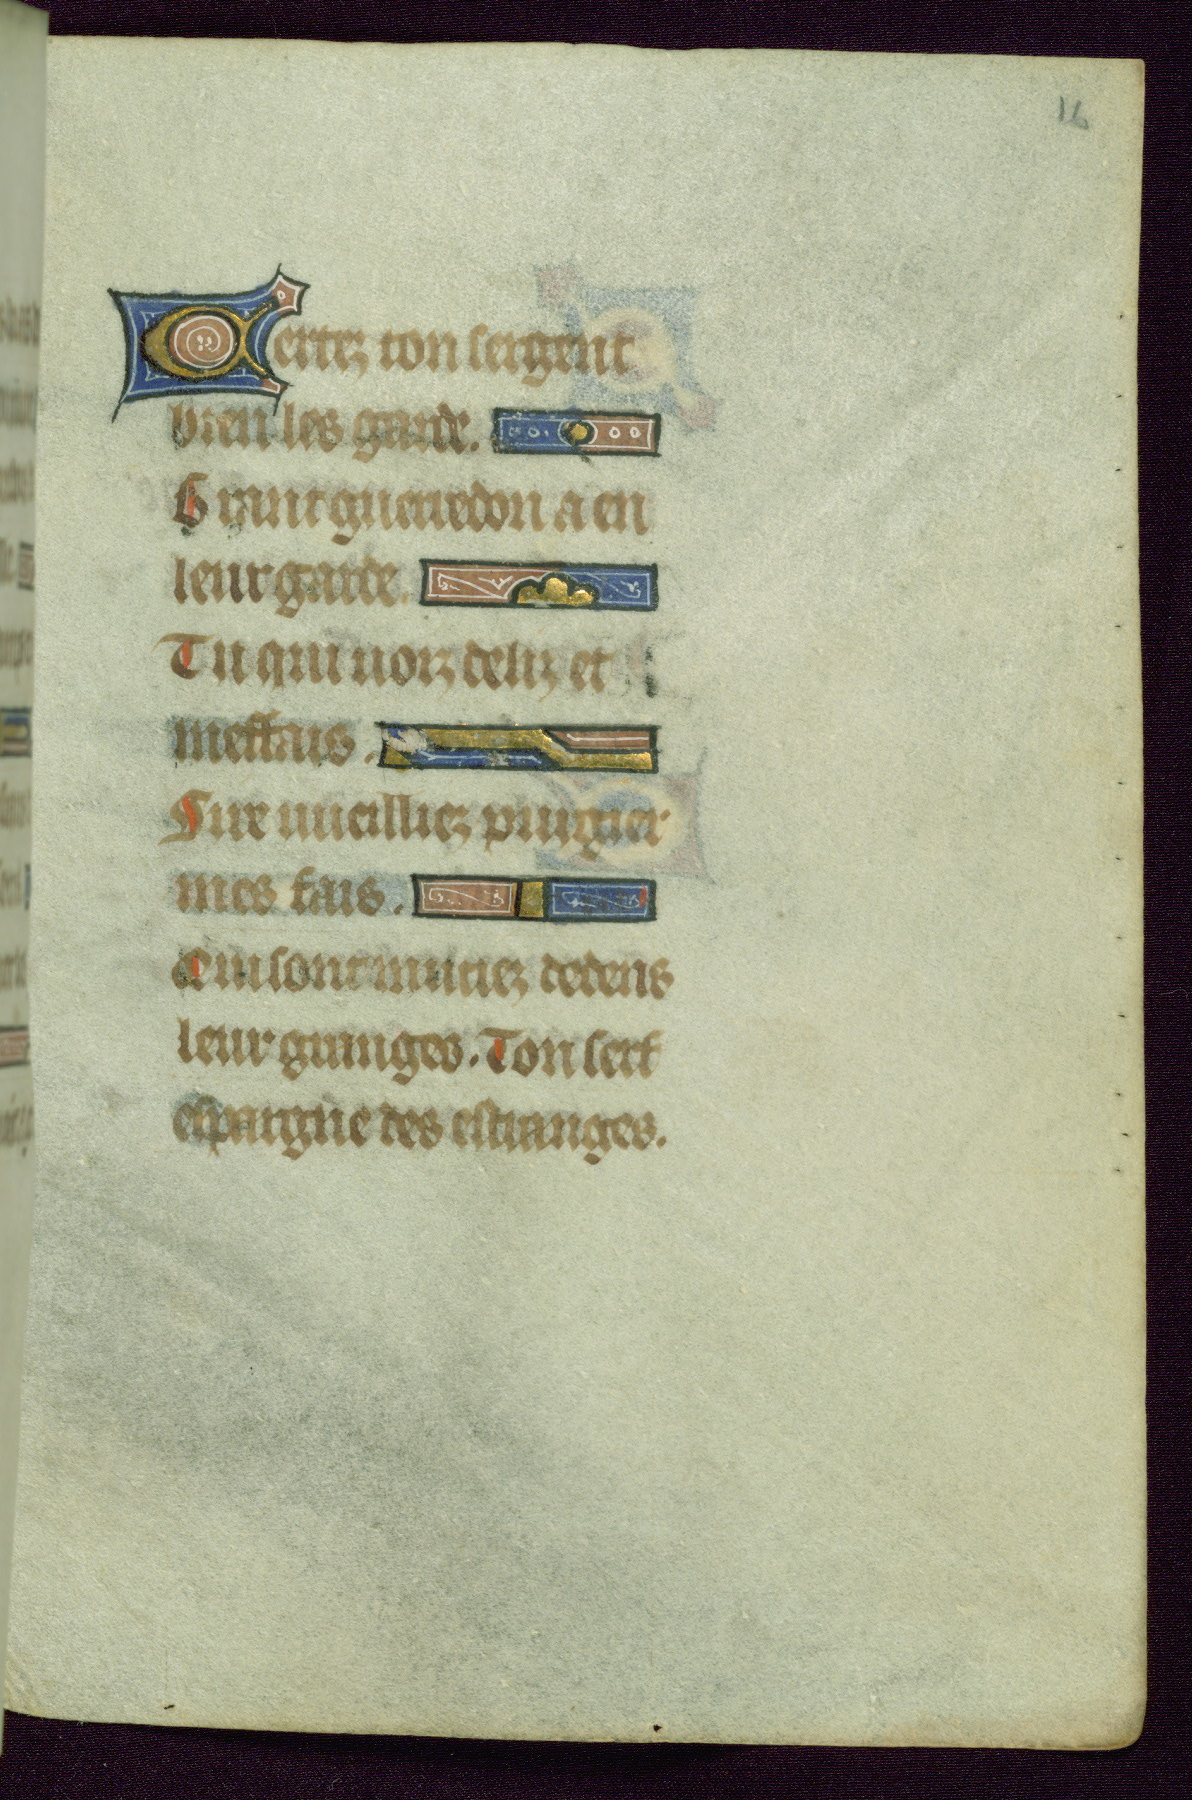 16
Certez ton sergent
bien les garde.
Grant guerredon a en
leur garde.
Tu qui voiz deliz et
meffais.
Sire vueilliez purgier
mes fais.
Qui sont muciez dedens
leur granges. Ton serf
espargne des estranges.